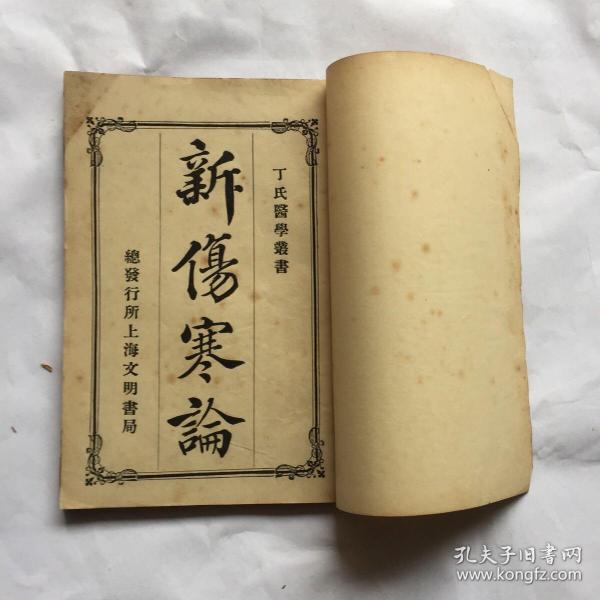 丁氏醫學叢書
新傷寒論
總發行所上海文明書局
孔夫子旧书网
www.kongfz.com